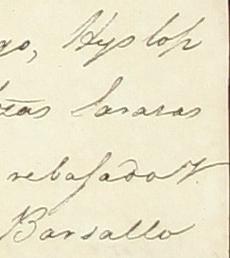 go, Hyslop
zas Sararas
rebasado V.
Barsallo